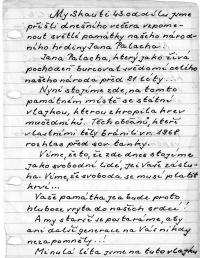 My Skauti 43. oddílu jsme
přišli dnešního večera vzpome-
nout světlé památky našeho národ-
ního hrdiny Jana Palacha.
Jana Palacha, který jako živá
pochodeň burcoval svědomí celého
našeho národa před 21 léty.
Nyní stojíme zde, na tomto
památném místě se státní
vlajkou, kterou zkropila krev
mučedníků. Těch občanů, kteří
vlastními těly bránili v r. 1968
rozhlas před sov. tanky.
Víme, že to, že zde dnes stojíme
jako svobodní lidé, je i Vaší zásluhou.
Víme, že svoboda se musí platit
krví...
Vaše památka je a bude proto
hluboce vryta do našich srdcí!
A my starší se postaráme, aby
ani další generace na Vás nikdy
nezapomněly...
Minulá léta jsme na tuto vlajku